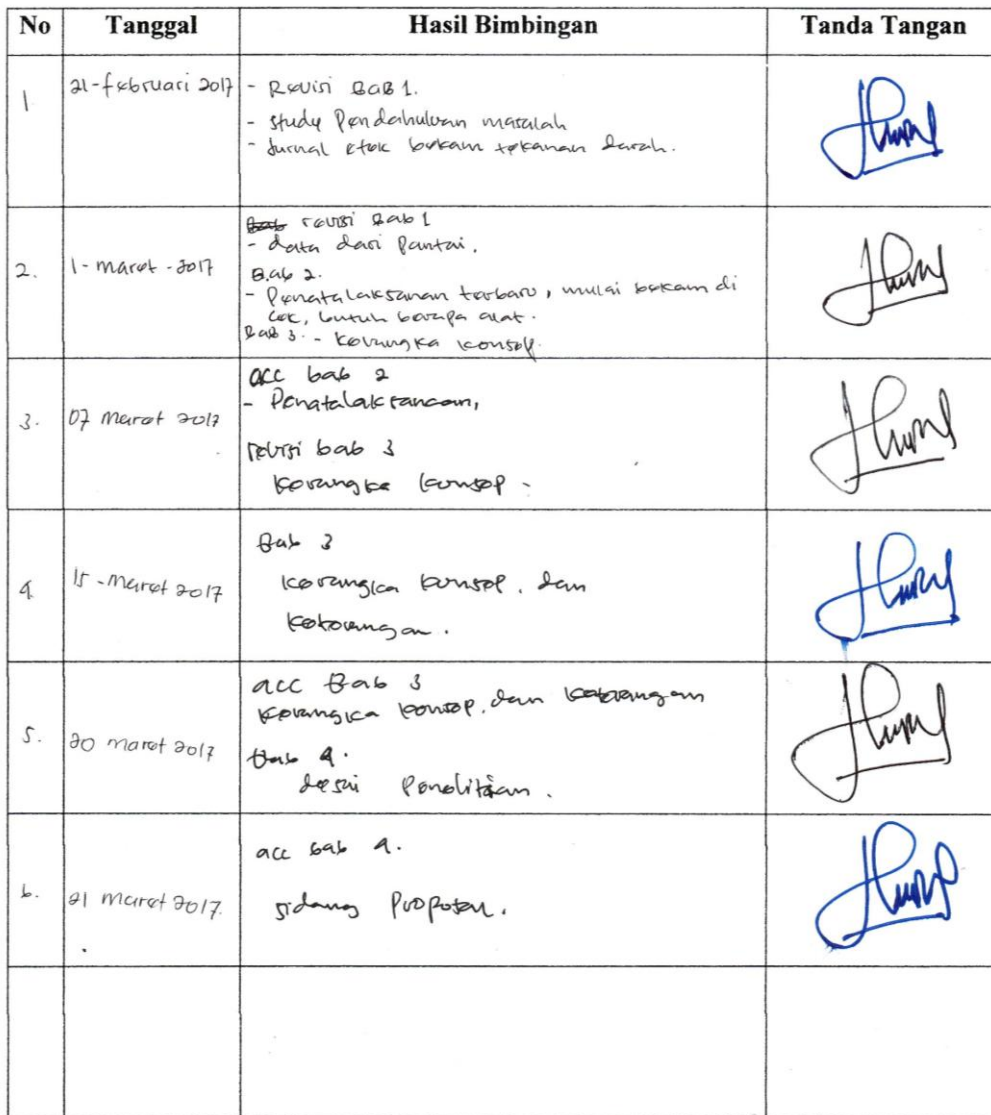 No Tanggal Hasil Bimbingan Tanda Tangan
1 21-februari 2017 - Revisi BAB 1.
- study Pendahuluan masalah
- Jurnal efek bekam tekanan darah.
2. 1-maret-2017 revisi Bab 1
- data dari Pantai.
Bab 2.
- Penatalaksanan terbaru, mulai bekam di
cek, butuh berapa alat.
Bab 3. - kerangka konsep.
3. 07 Maret 2017 acc bab 2
- Penatalaksanaan,
revisi bab 3
kerangka konsep -
4. 15-Maret 2017 Bab 3
kerangka konsep, dan
keterangan.
5. 20 maret 2017 acc Bab 3
kerangka konsep, dan keterangan
Bab 4.
desain Penelitian.
6. 21 maret 2017. acc bab 4.
sidang Proposal.